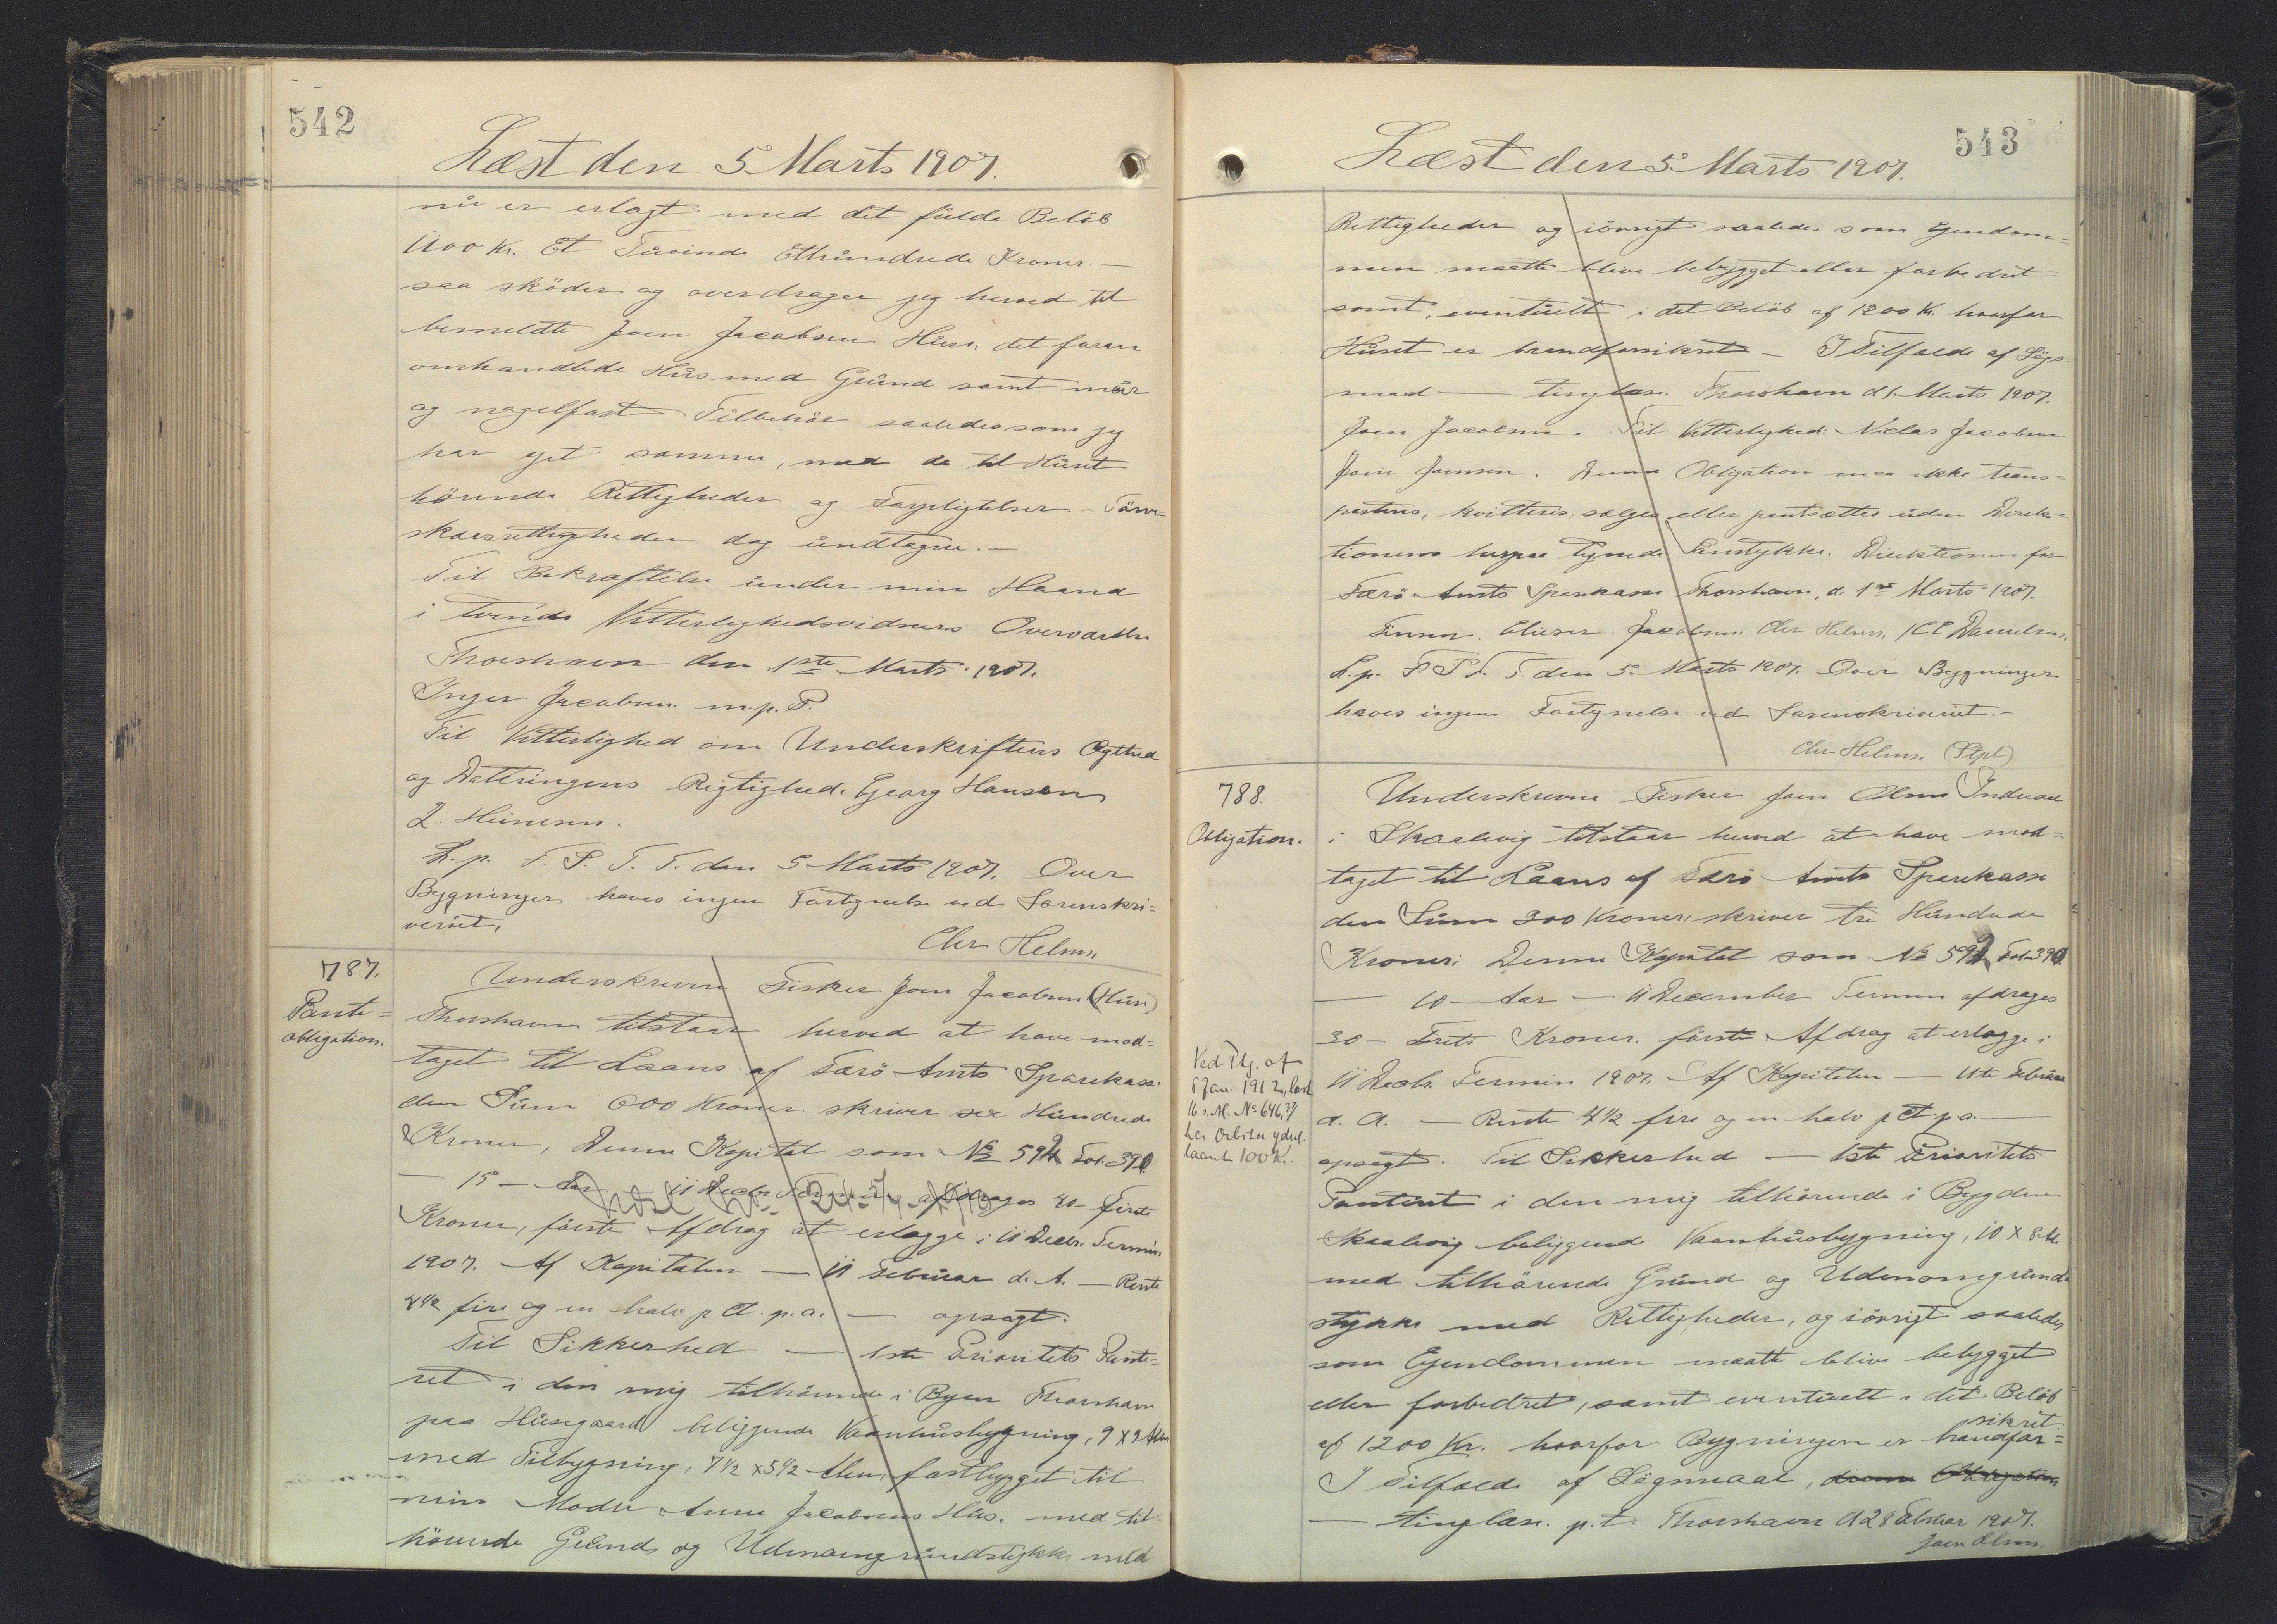 542
Læst den 5 Marts 1907.
nu er erlagt med det fulde Beløb
1100 Kr. Et Tusinde Ethundrede Kroner. —
saa skøder og overdrager jeg herved til
bemeldte Joen Jacobsen Husi, det foran
omhandlede Hus med Grund samt mur
og nagelfast Tilbehør saaledes som jeg
har ejet samme, med de til Huset
hörende Rettigheder og Forpligtelser – Törve=
skærsrettigheder dog undtagne. —
Til Bekræftelse under min Haand
i tvende Vitterlighedsvidners Overværelse
Thorshavn den 1ste Marts 1907.
Inger Jacobsen m.p.P.
Til Vitterlighed om Underskriftens Ægthed
og Dateringens Rigtighed. Georg Hansen
Z. Heinesen.
L. p. F. S. T. T. den 5 Marts 1907. Over
Bygninger haves ingen Fortegnelse ved Sorenskri=
veriet,
Chr Helms.
787.
Pante=
obligation.
Underskrevne Fisker Joen Jacobsen (Husi)
Thorshavn tilstaar herved at have mod=
taget til Laans af Færö Amts Sparekasse
den Sum 600 Kroner skriver sex Hundrede
Kroner, Denne Kapital som № 592 Fol. 390
— 15 — Aar — 11 Decbr Termin afdrages 40 firti
Kroner, förste Afdrag at erlægge i 11 Decbr. Termin
1907. Af Kapitalen — 11 Februar d. A. — Rente
4 1/2 fire og en halv p Ct. p.a. — opsagt.
Til Sikkerhed — 1ste Prioritets Pante=
ret i den mig tilhörende i Byen Thorshavn
paa Husegaard beliggende Vaanhusbygning, 9 x 9 Alen
med Tilbygning, 7 1/2 x 5 1/2 Alen, fastbygget til
min Moder Anne Jacobsens Hus, med til=
hörende Grund og Udenomsgrundstykke med
543
Læst den 5 Marts 1907.
Rettigheder og iövrigt saaledes som Ejendom=
men maatte blive bebygget eller forbedret
samt, eventuelt i det Beløb af 1200 Kr. hvorfor
Huset er brandforsikret — I Tilfælde af Sögs=
maal — tinglæse. Thorshavn d 1 Marts 1907.
Joen Jacobsen. Til Vitterlighed: Niclas Jacobsen
Joen Joensen. Denne Obligation maa ikke trans=
porteres, kvitteres, sælges eller pantsættes uden Direk=
tionens herpaa tegnede Samtykke. Direktionen for
Færö Amts Sparekasse Thorshavn, d. 1ste Marts 1907.
Finsen. Elieser Jacobsen. Chr Helms. J C C Danielsen.
L. p. F. S T. T. den 5 Marts 1907. Over Bygninger
haves ingen Fortegnelse ved Sorenskriveriet. —
Chr Helms. (Stpl)
788.
Obligation.
Underskrevne Fisker Joen Olsen
i Skaalevig tilstaar herved at have mod=
taget til Laans af Færö Amts Sparekasse
den Sum 300 Kroner, skriver tre Hundrede
Kroner; Denne Kapital som № 592 Fol. 390
— 10 — Aar — 11 December Termin afdrages
30 — Treti Kroner, förste Afdrag at erlægge i
11 Decbr. Termin 1907. Af Kapitalen — 11te Februar
d. A. — Rente 4 1/2 fire og en halv p Ct. p.a. —
opsagt. Til Sikkerhed — 1ste Prioritets
Panteret i den mig tilhörende i Bygden
Skaalevig beliggende Vaanhusbygning, 10 x 8 Al.
med tilhörende Grund og Udenomsgrund
stykke med Rettigheder, og iövrigt saaledes
som Ejendommen maatte blive bebygget
eller forbedret, samt eventuelt i det Beløb
af 1200 Kr. hvorfor Bygningen er brandfor=
sikret.
I Tilfælde af Sögsmaal,
— tinglæse. p. t. Thorshavn d 28 Februar 1907.
Joen Olsen.
Ved Ptg. af
8 Jan. 1912, læst
16 s. M. № 646,
har Debitor
laant 100 Kr.